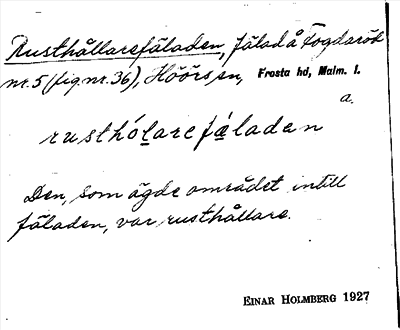 Rusthållarefäladen, fälad å Fogdaröd
nr. 5 (fig. nr. 36), Höörs sn, Frosta hd, Malm. l.
a.
rusthó̱larefä́laden
Den, som ägde området intill
fäladen, var rusthållare.
EINAR HOLMBERG 1927